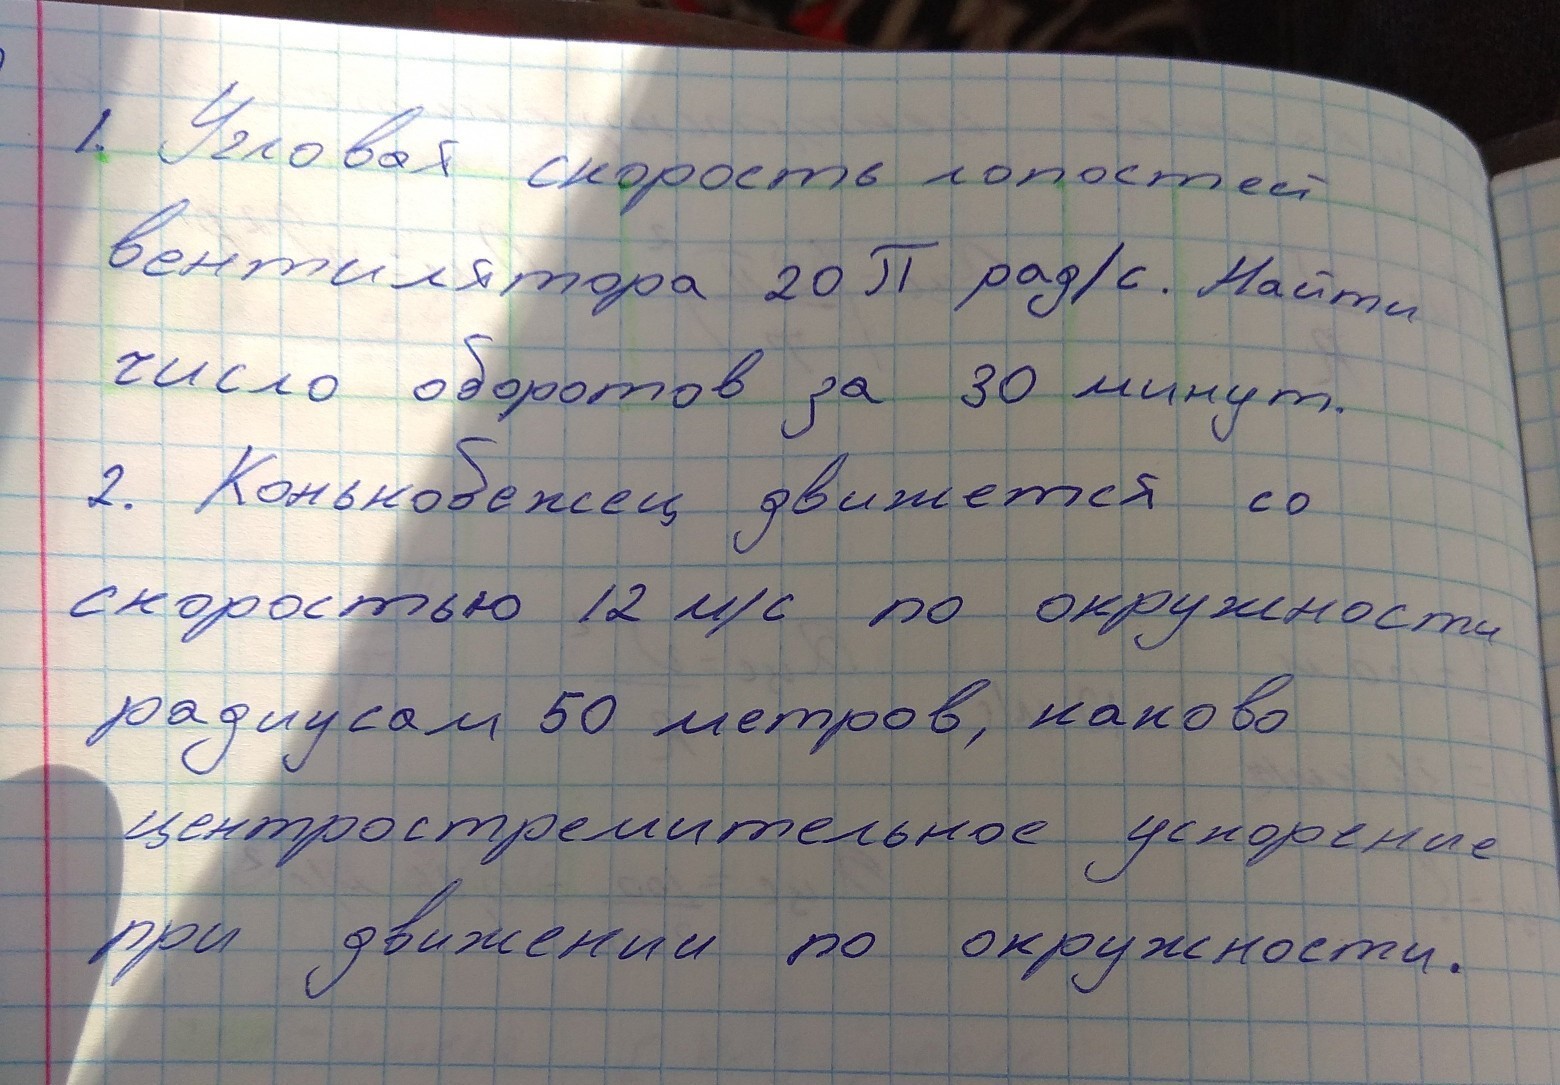 1. Угловая скорость лопостей
вентилятора 20 П рад/с. Найти
число оборотов за 30 минут.
2. Конькобежец движется со
скоростью 12 м/с по окружности
радиусам 50 метров, каково
центростремительное ускорение
при движении по окружности.